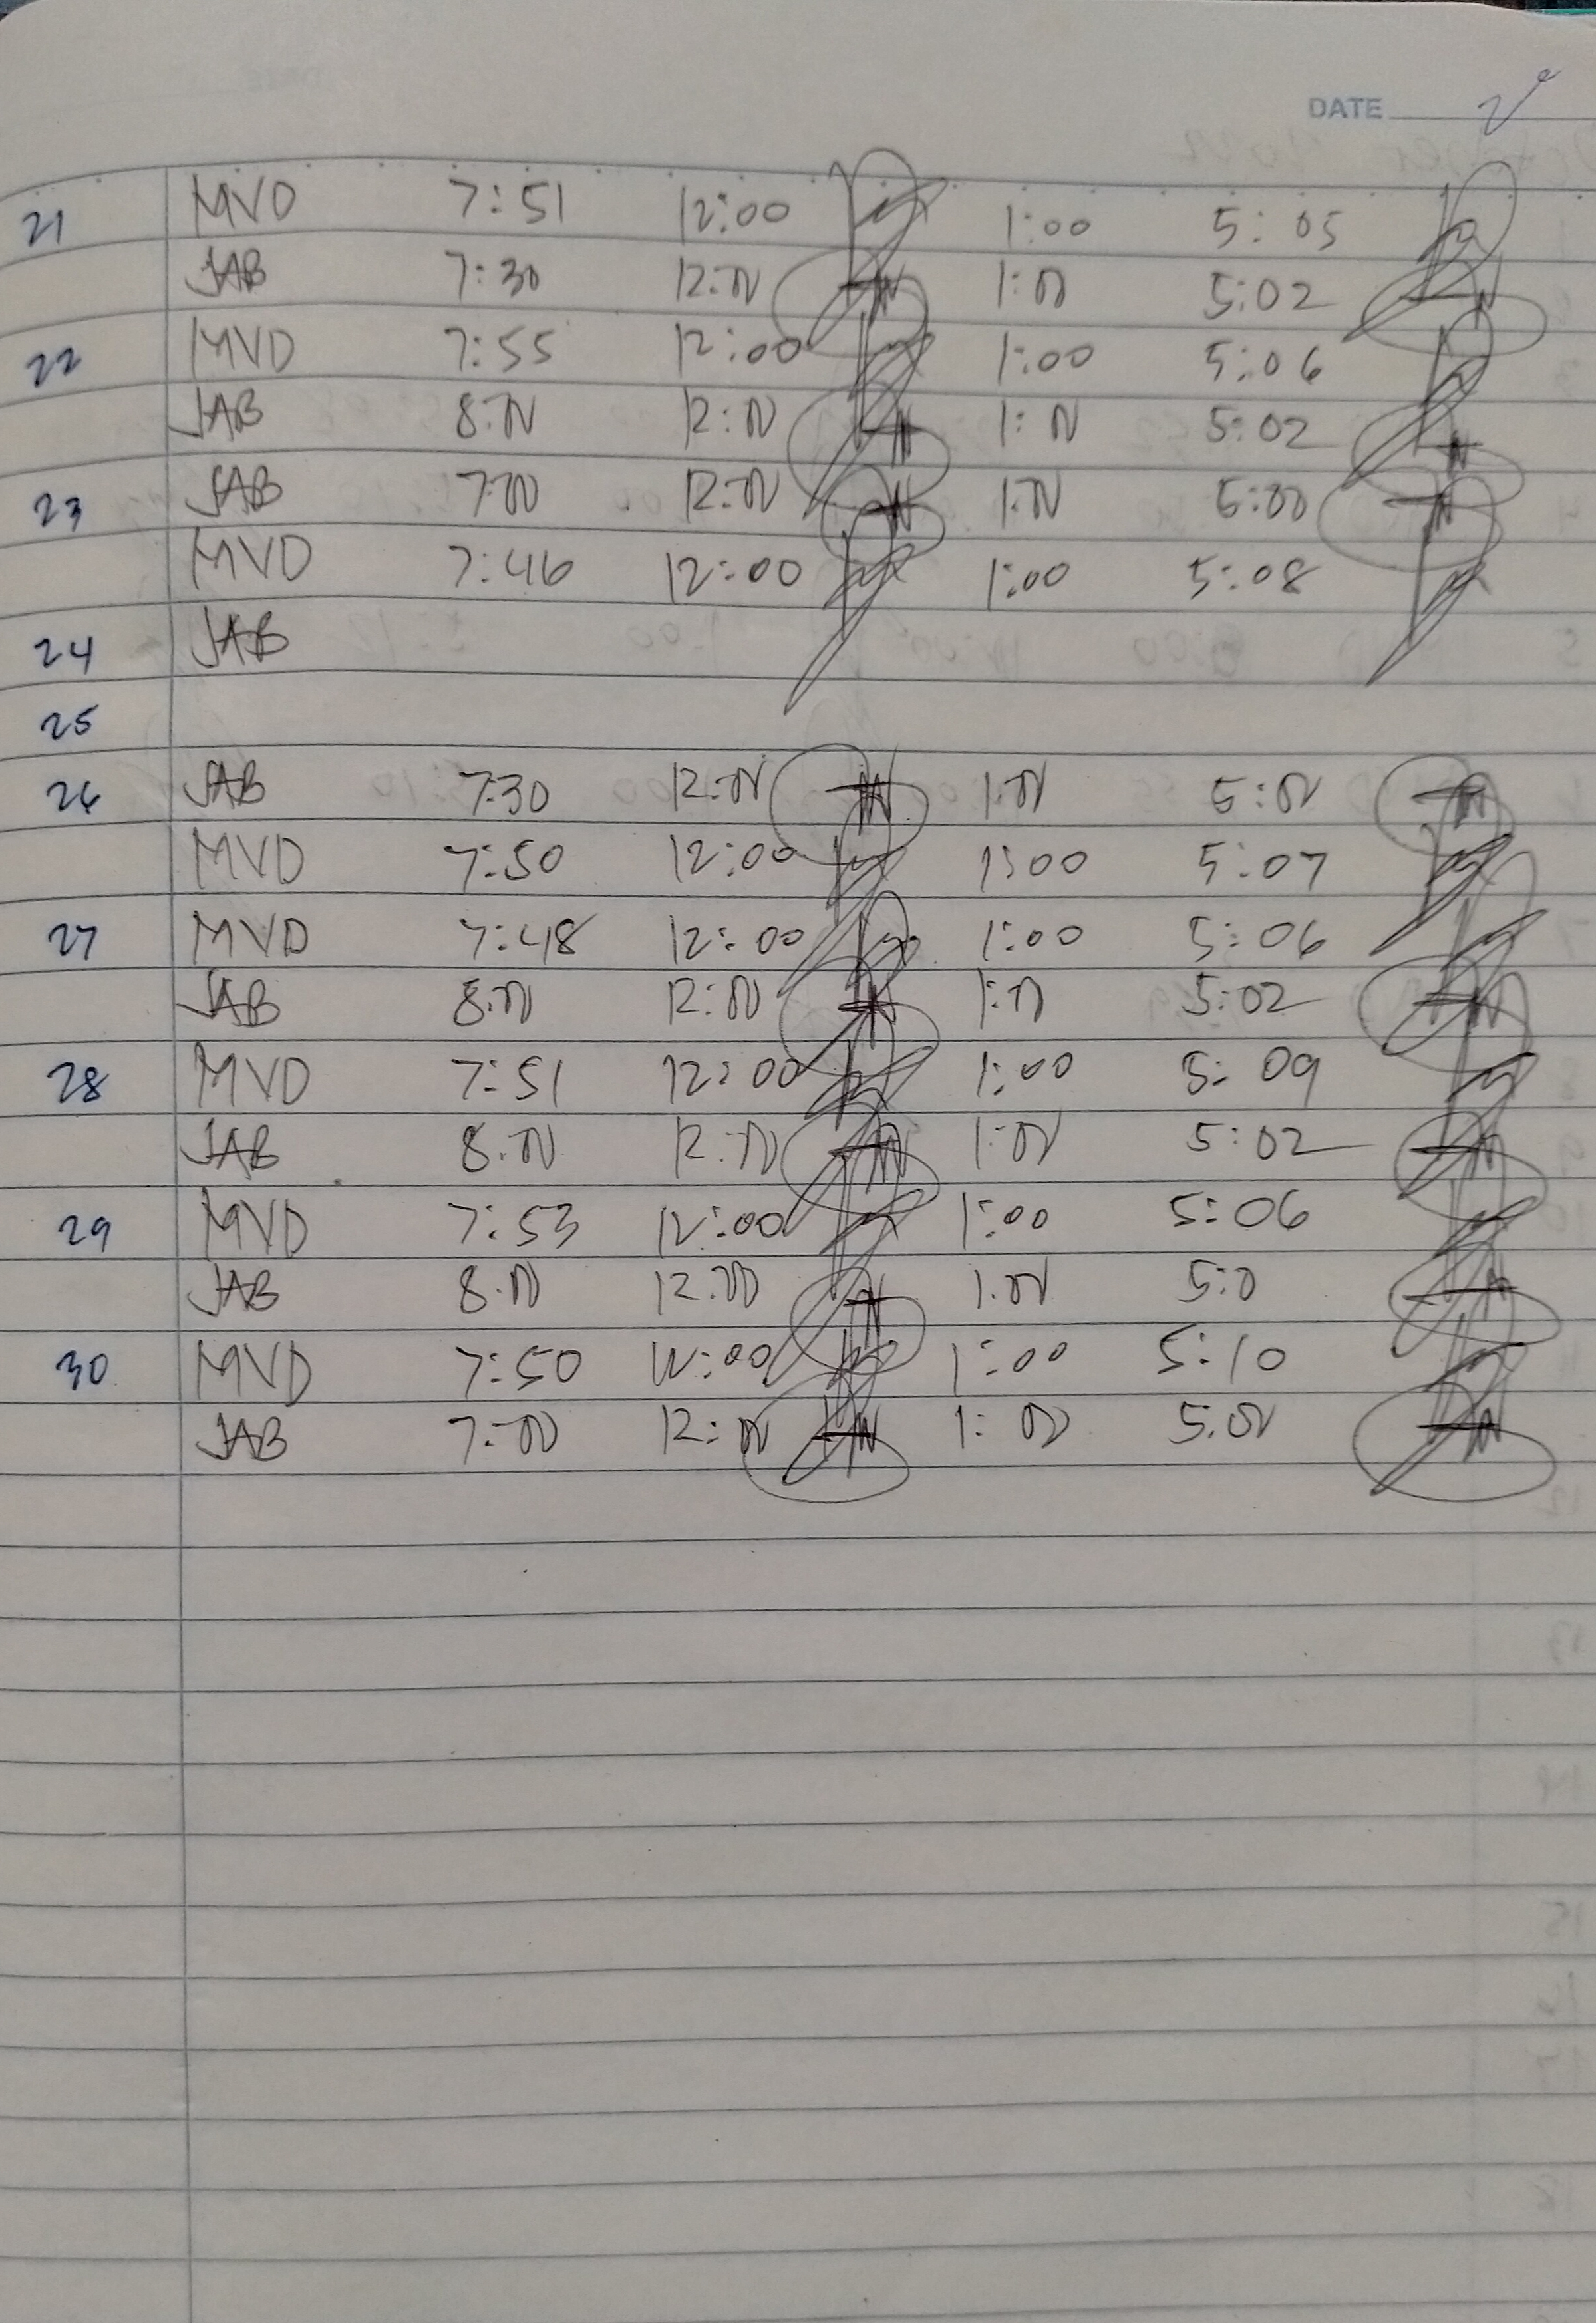 DATE
21 MVD 7:51 12:00 1:00 5:05
JAB 7:30 12:00 1:00 5:02
22 MVD 7:55 12:00 1:00 5:06
JAB 8:00 12:00 1:00 5:02
23 JAB 7:00 12:00 1:00 5:00
MVD 7:46 12:00 1:00 5:08
24 JAB
25
26 JAB 7:30 12:00 1:00 5:00
MVD 7:50 12:00 1:00 5:07
27 MVD 7:48 12:00 1:00 5:06
JAB 8:00 12:00 1:00 5:02
28 MVD 7:51 12:00 1:00 5:09
JAB 8:00 12:00 1:00 5:02
29 MVD 7:53 12:00 1:00 5:06
JAB 8:00 12:00 1:00 5:0
30 MVD 7:50 12:00 1:00 5:10
JAB 7:00 12:00 1:00 5:00